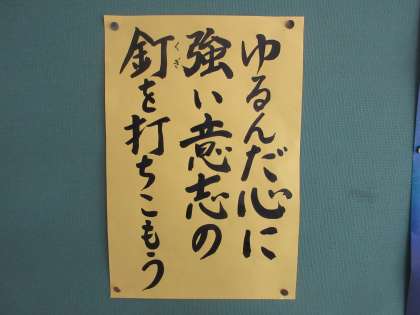 ゆるんだ心に
強い意志の
釘を打ちこもう
くぎ